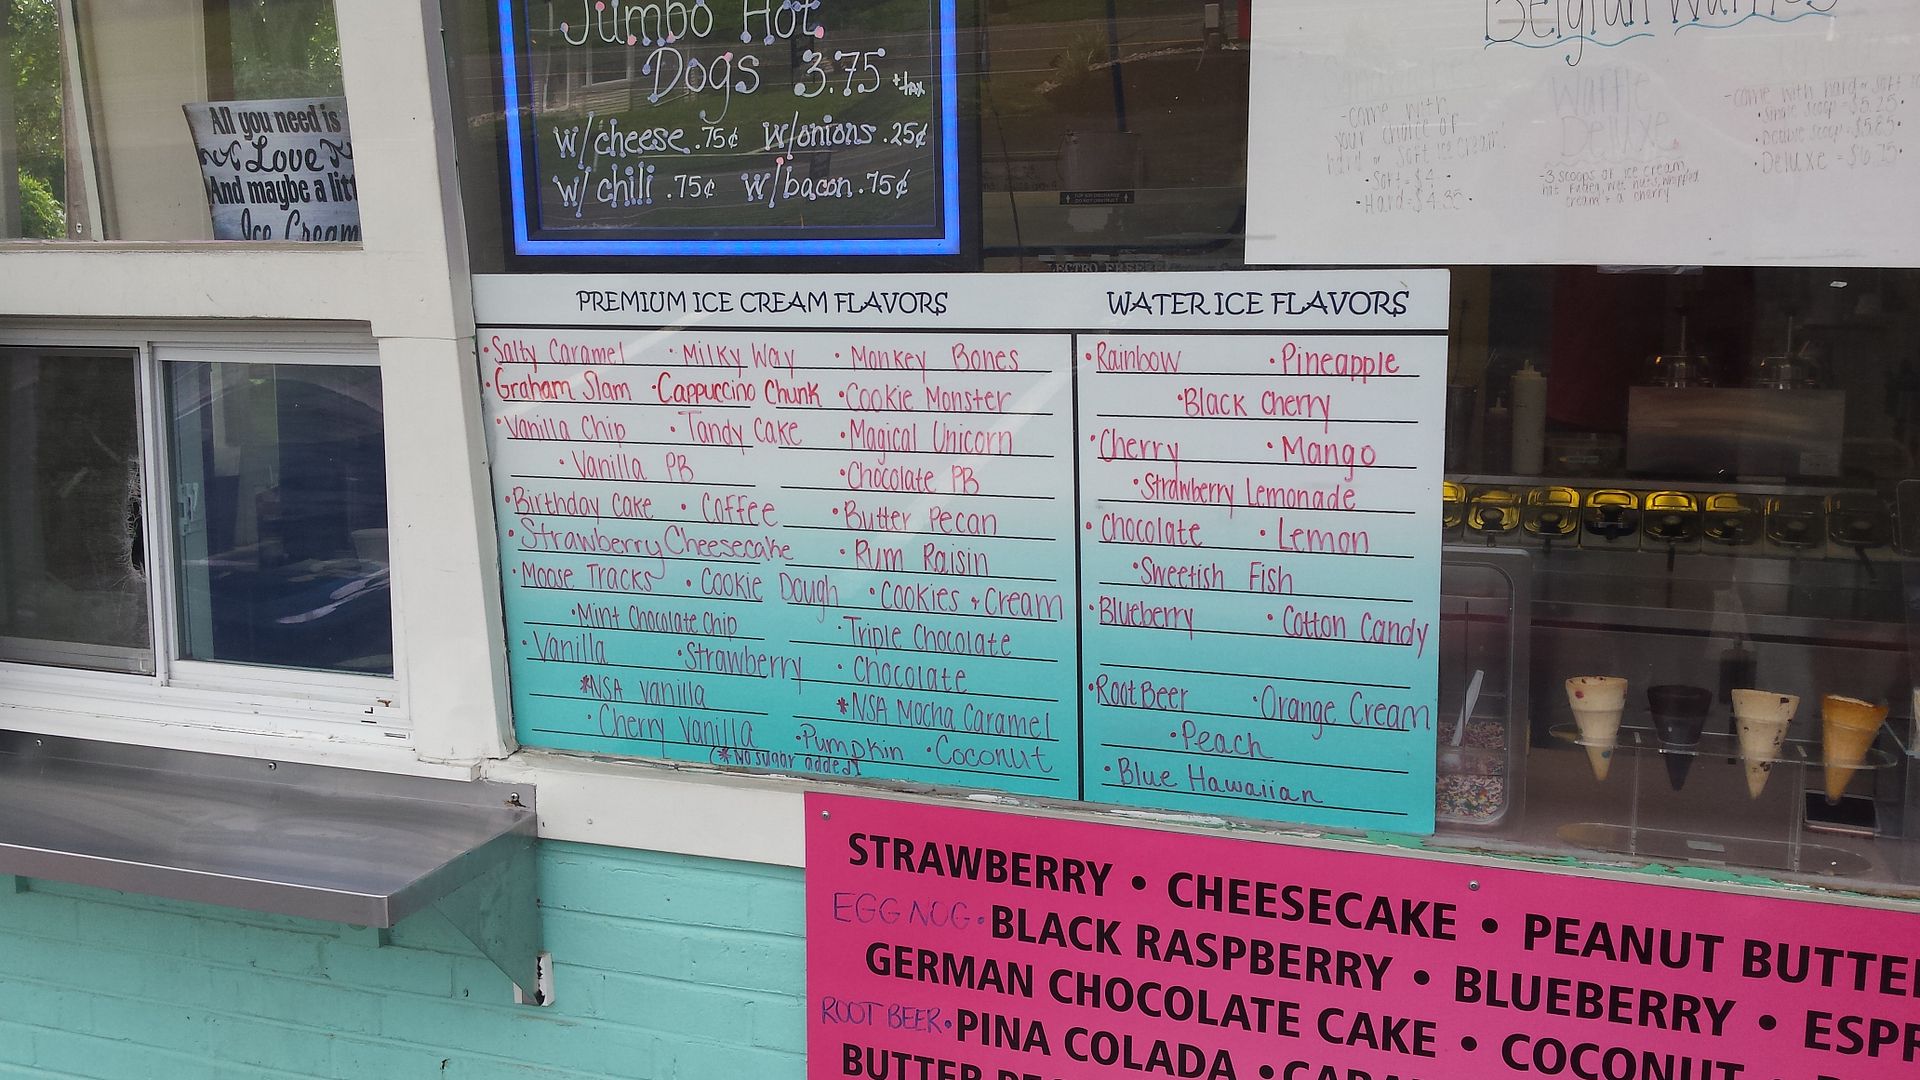 Jumbo Hot
Dogs 3.75 +tax
w/cheese .75¢ w/onions .25¢
w/chili .75¢ w/bacon .75¢
All you need is
Love
And maybe a
Ice Cream
Belgian Waffles
-come with
your choice of
hard or soft ice cream!
• Soft = $4 •
• Hard = $4.35 •
Waffle
Deluxe
-3 scoops of ice cream,
hot fudge, wet nuts, whipped
cream + a cherry
-come with hard or soft
• single scoop = $5.25 •
• Deluxe = $6.75 •
PREMIUM ICE CREAM FLAVORS
• Salty Caramel • Milky Way • Monkey Bones
• Graham Slam • Cappuccino Chunk • Cookie Monster
• Vanilla Chip • Tandy Cake • Magical Unicorn
• Vanilla PB • Chocolate PB
• Birthday Cake • Coffee • Butter Pecan
• Strawberry Cheesecake • Rum Raisin
• Moose Tracks • Cookie Dough • Cookies + Cream
• Mint Chocolate Chip • Triple Chocolate
• Vanilla • Strawberry • Chocolate
*NSA Vanilla *NSA Mocha Caramel
• Cherry Vanilla • Pumpkin • Coconut
(*No sugar added)
WATER ICE FLAVORS
• Rainbow • Pineapple
• Black Cherry
• Cherry • Mango
• Strawberry Lemonade
• Chocolate • Lemon
• Sweetish Fish
• Blueberry • Cotton Candy
• Root Beer • Orange Cream
• Peach
• Blue Hawaiian
STRAWBERRY • CHEESECAKE • PEANUT BUTTE
EGG NOG • BLACK RASPBERRY • BLUEBERRY • ESPR
GERMAN CHOCOLATE CAKE • COCONUT •
ROOT BEER • PINA COLADA • CARA
BUTTER PE